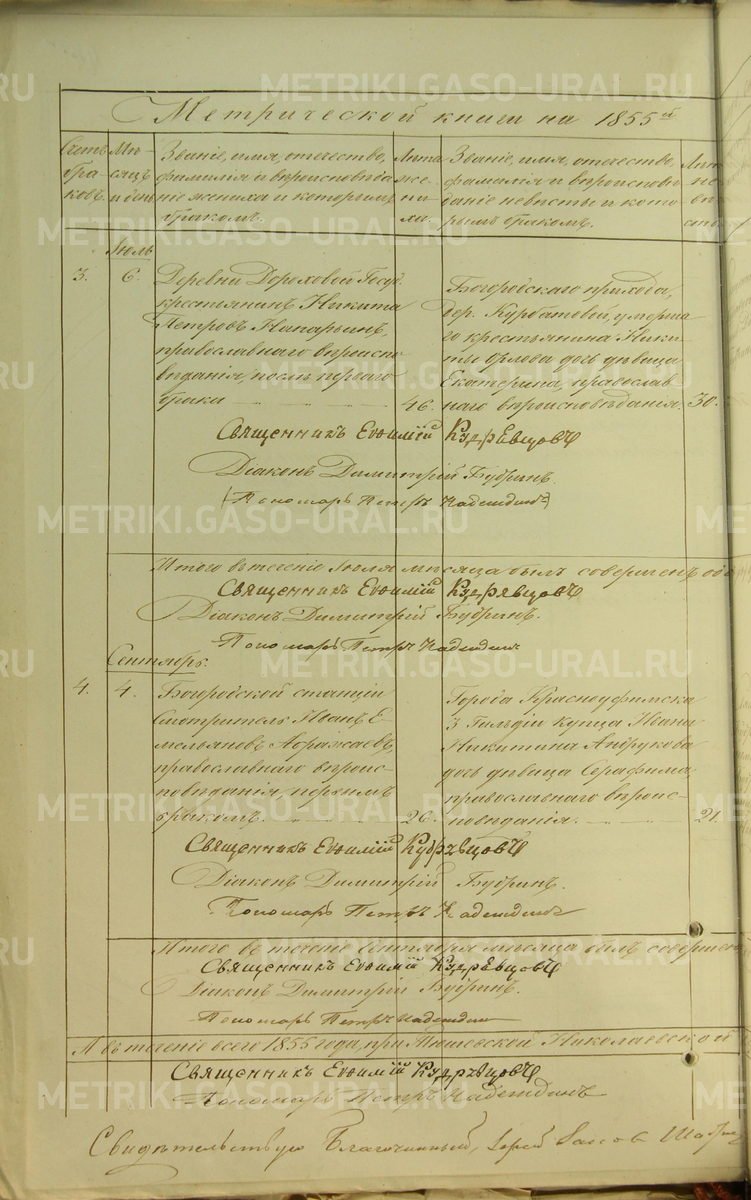 Метрической книги на 1855й
Счетъ бра- ковъ.
Мѣ- сяцъ и день
Званіе, имя, отечество, фамилія и вѣроисповѣда- ніе жениха и которымъ бракомъ.
Лѣта же- ни- ха.
Званіе, имя, отечество, фамилія и вѣроисповѣ- даніе невѣсты и кото- рымъ бракомъ.
Іюль
3.
6.
Деревни Дороховой Госуд.
крестьянинъ Никита
Петровъ
православнаго вѣроиспо-
вѣданія, послѣ перваго
брака
46.
Богородскаго прихода,
дер. Курбатовой, умерша-
го крестьянина Ники-
ты Орлова дочь дѣвица
Екатерина, православ-
наго вѣроисповѣданія.
30.
Священникъ Евфимій Кудрявцовъ
Діаконъ Димитрій Будринъ.
Пономарь Петръ Надеждинъ
Итого въ теченіе Іюля мѣсяца былъ совершенъ
Священникъ Евфимій Кудрявцовъ
Діаконъ Димитрій Будринъ.
Пономарь Петръ Надеждинъ
Сентябрь.
4.
4.
Богородской станціи
Смотритель Иванъ Е-
мельяновъ
православнаго вѣроис-
повѣданія, первымъ
бракомъ.
26.
Города Красноуфимска
3 Гильдіи купца Ивана
Никитина Андрукова
дочь дѣвица Серафима,
православнаго вѣроис-
повѣданія.
21.
Священникъ Евфимій Кудрявцовъ
Діаконъ Димитрій Будринъ.
Пономарь Петръ Надеждинъ
Итого въ теченіе Сентября мѣсяца былъ
Священникъ Евфимій Кудрявцовъ
Діаконъ Димитрій Будринъ.
Пономарь Петръ Надеждинъ
А въ теченіе всего 1855 года при Тюшевской Николаевской
Священникъ Евфимій Кудрявцовъ
Пономарь Петръ Надеждинъ
Свидѣтельствую Благочинный, Іерей
METRIKI.GASO-URAL.RU